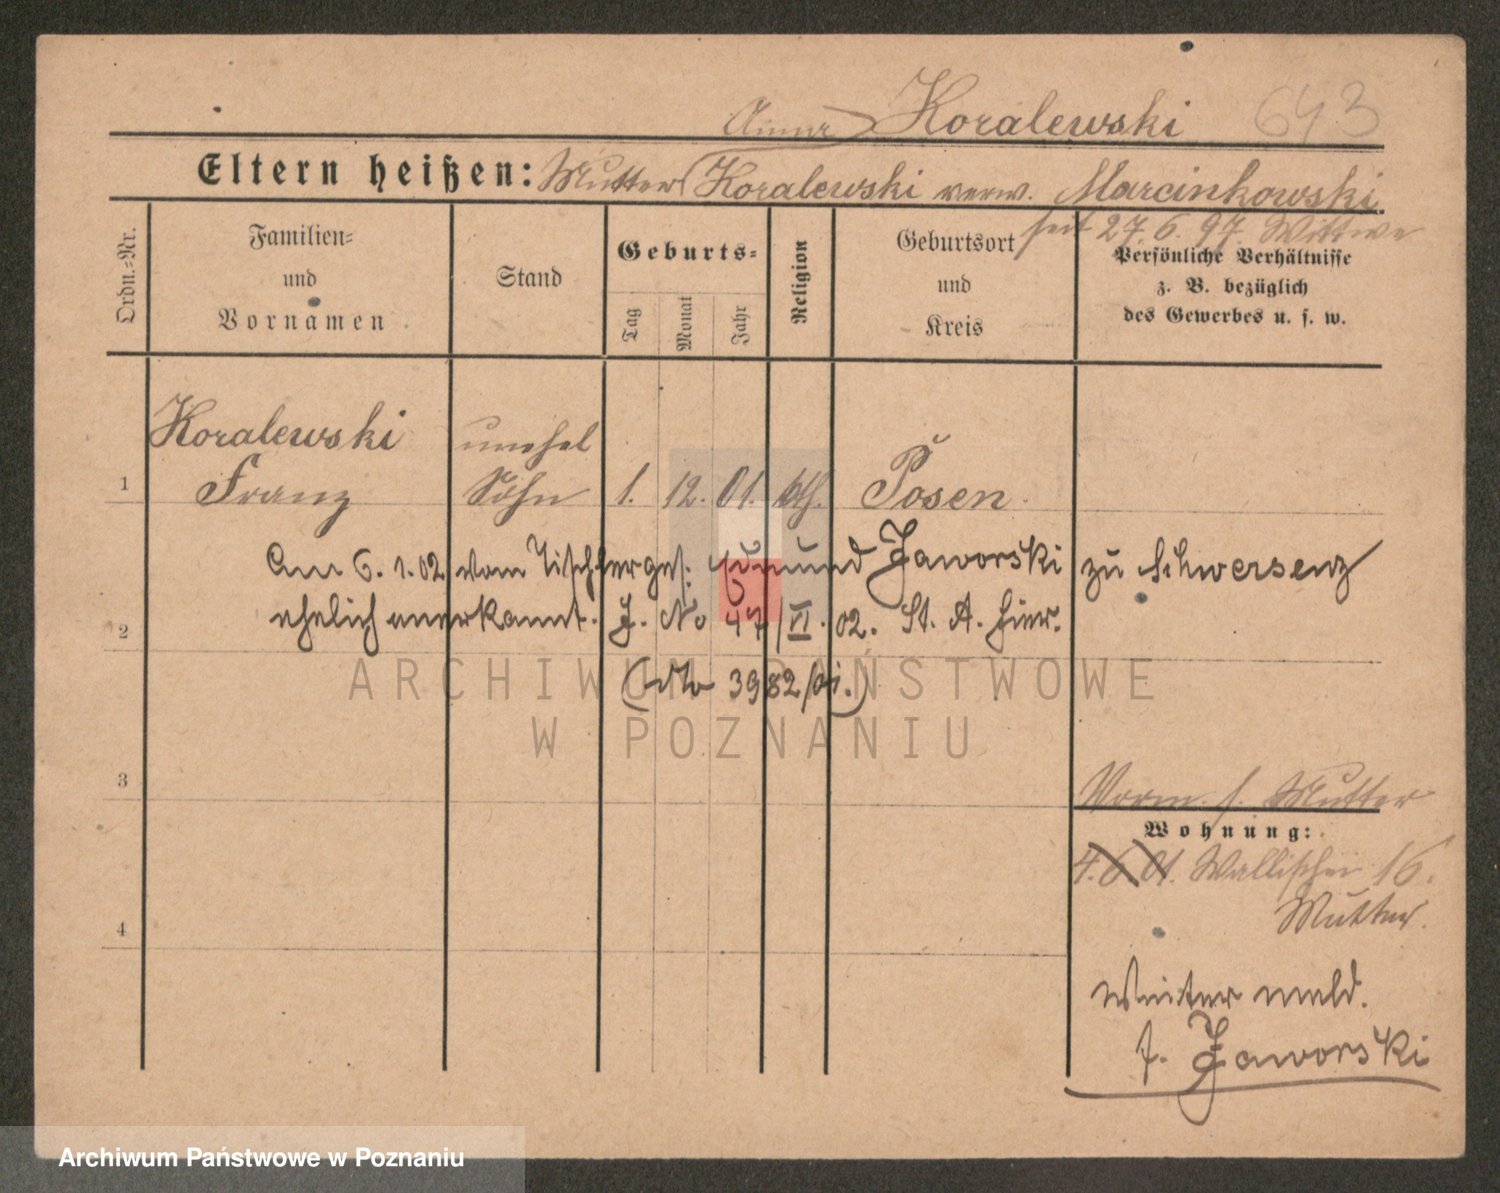 Koralewski 643
Eltern heißen: Mutter Koralewski verw. Marcinkowski
seit 27.6.97 Wittwe
Ordn.-Nr.
Familien-
und
Vornamen
Stand
Geburts-
Tag
Monat
Jahr
Religion
Geburtsort
und
Kreis
Persönliche Verhältnisse
z. B. bezüglich
des Gewerbes u. s. w.
Koralewski unehel
1 Franz Sohn 1. 12. 01. kth. Posen
Am 6.1.02 vom Tischlerges. Edmund Jaworski zu Schwersenz
ehelich anerkannt. J. No 47/VI. 02. St. A. hier.
2
(No 3982/01.)
ARCHIWUM PAŃSTWOWE
W POZNANIU
3
Vorm. s. Mutter
Wohnung:
4.6.01. Wallischei 16.
Mutter.
4
Weiter meld.
f. Jaworski
Archiwum Państwowe w Poznaniu